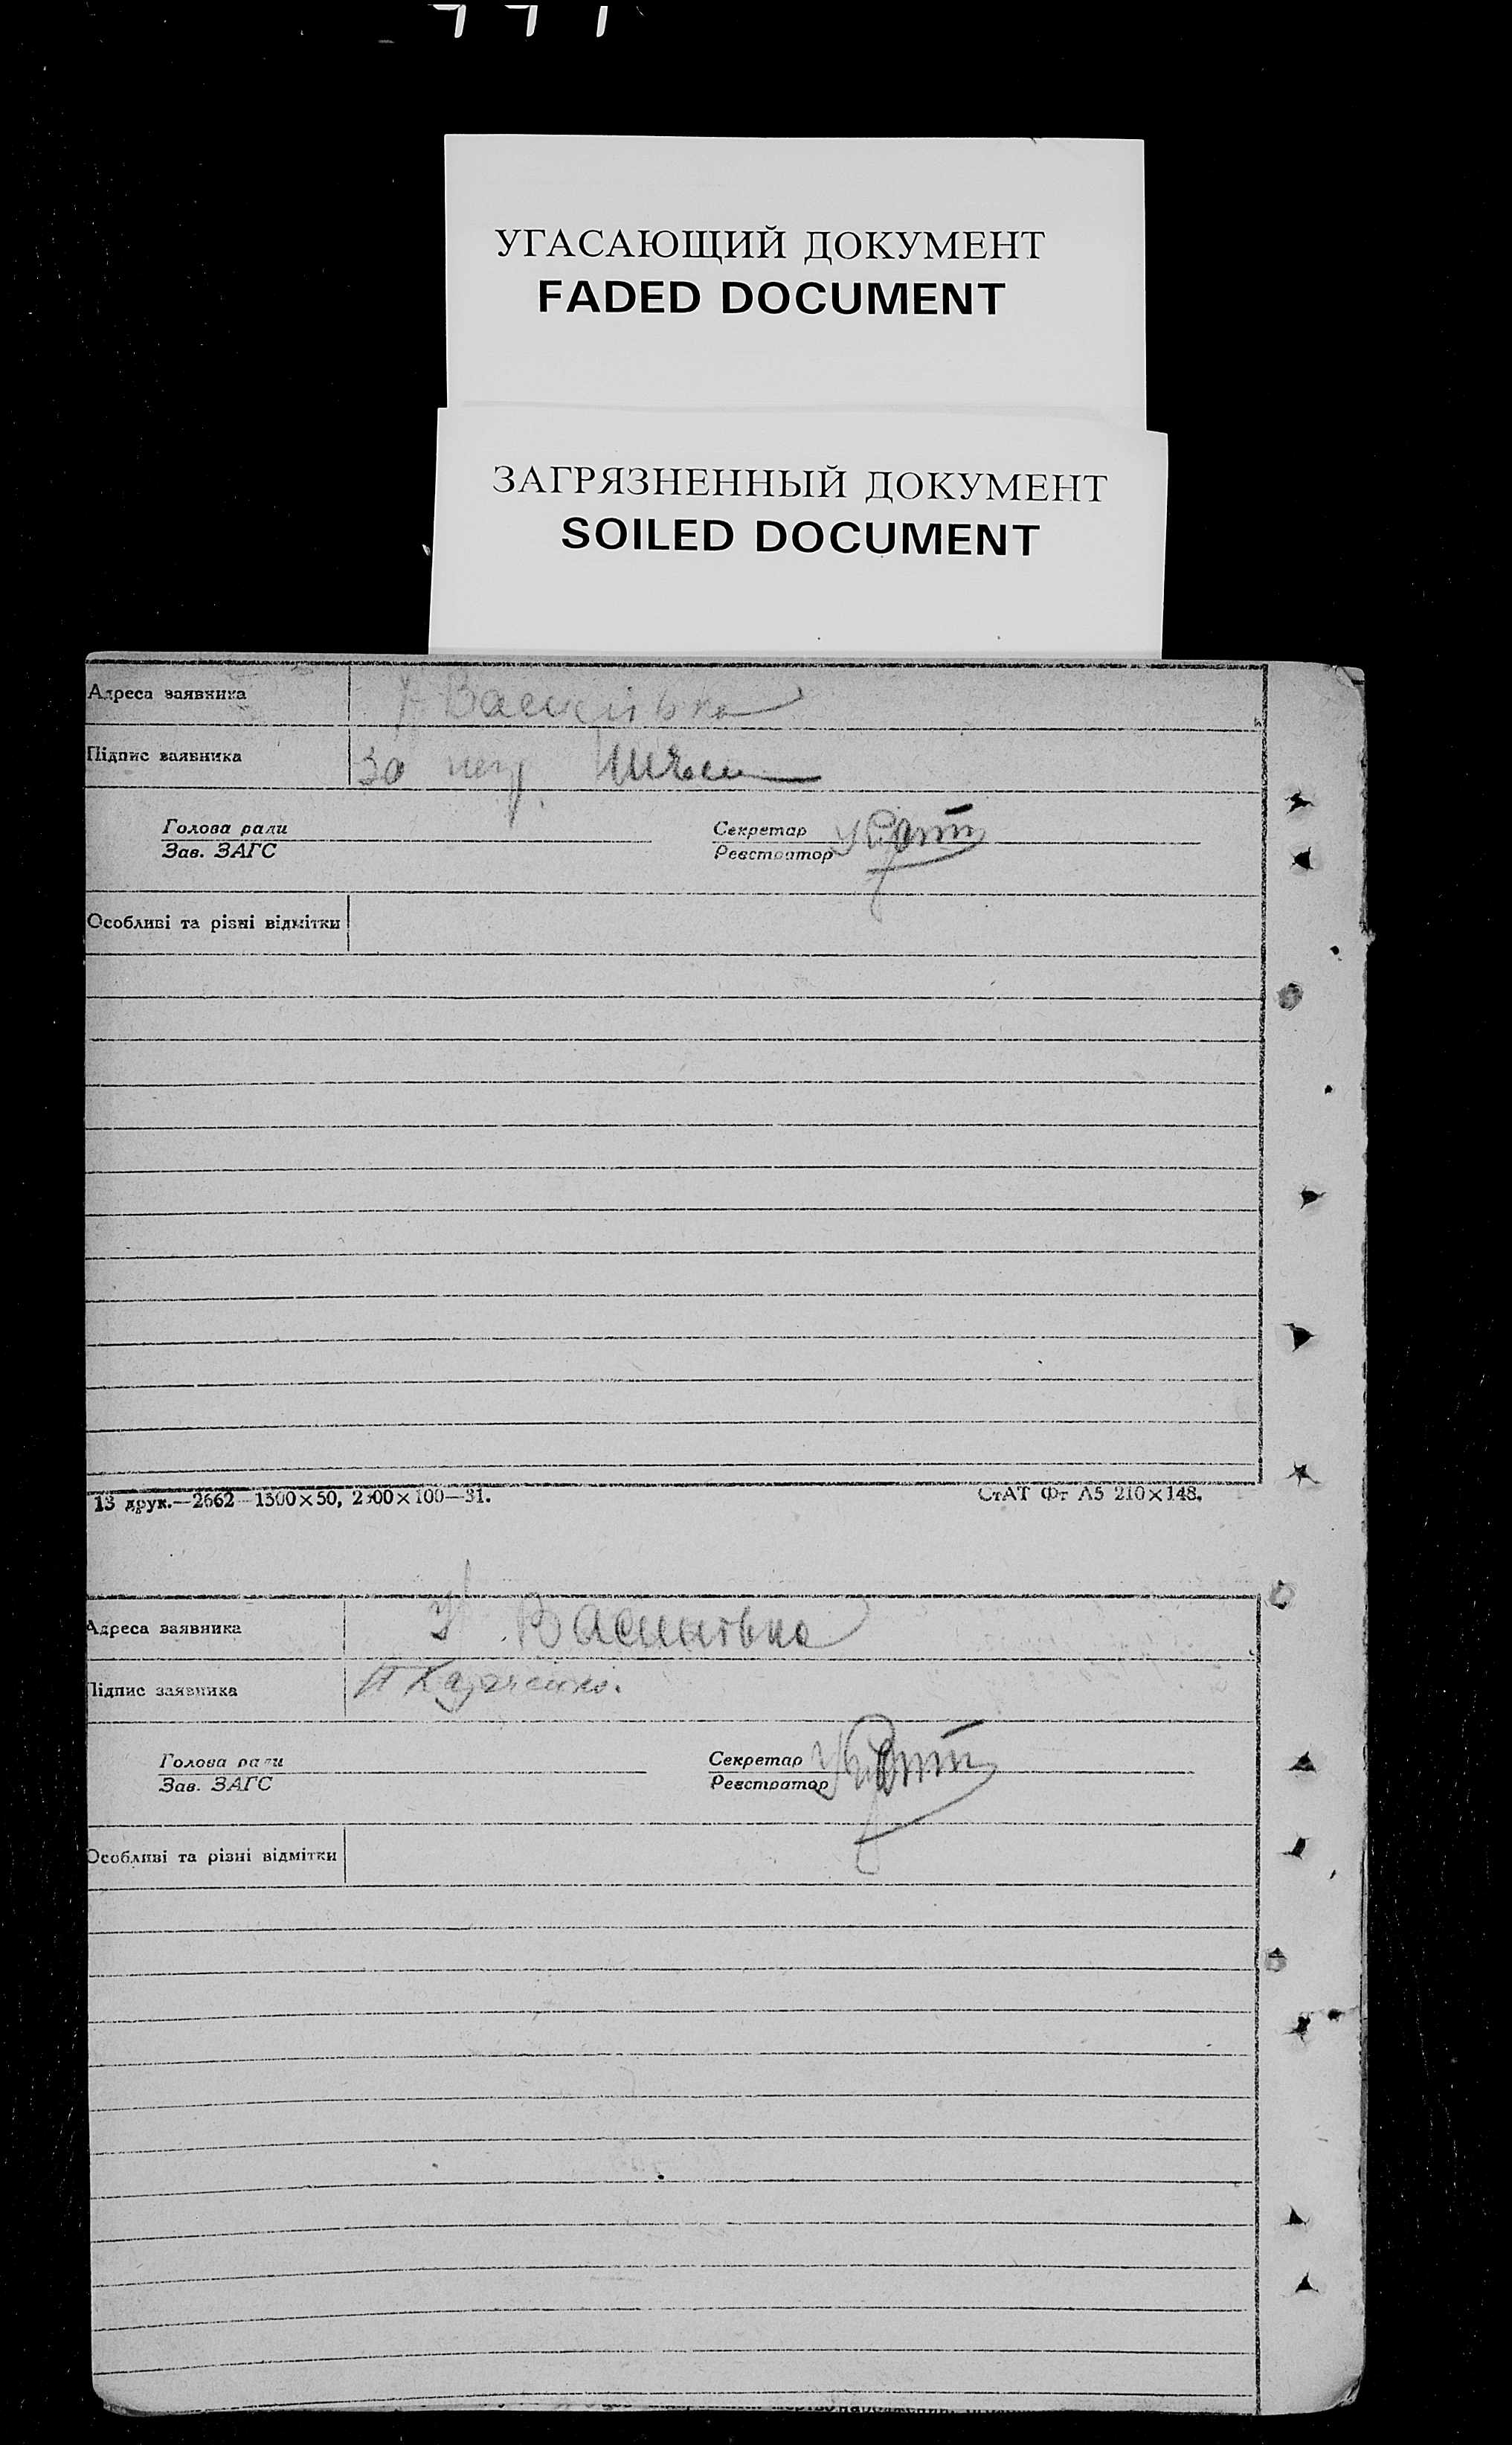 УГАСАЮЩИЙ ДОКУМЕНТ
FADED DOCUMENT
ЗАГРЯЗНЕННЫЙ ДОКУМЕНТ
SOILED DOCUMENT
Адреса заявника Василівка
Підпис заявника за неп.
Голова ради Секретар
Зав. ЗАГС Реєстратор
Особливі та різні відмітки
13 друк.—2662—1500×50, 2300×100—31. СтАТ Фт А5 210×148.
Адреса заявника Василівка
Підпис заявника
Голова ради Секретар
Зав. ЗАГС Реєстратор
Особливі та різні відмітки